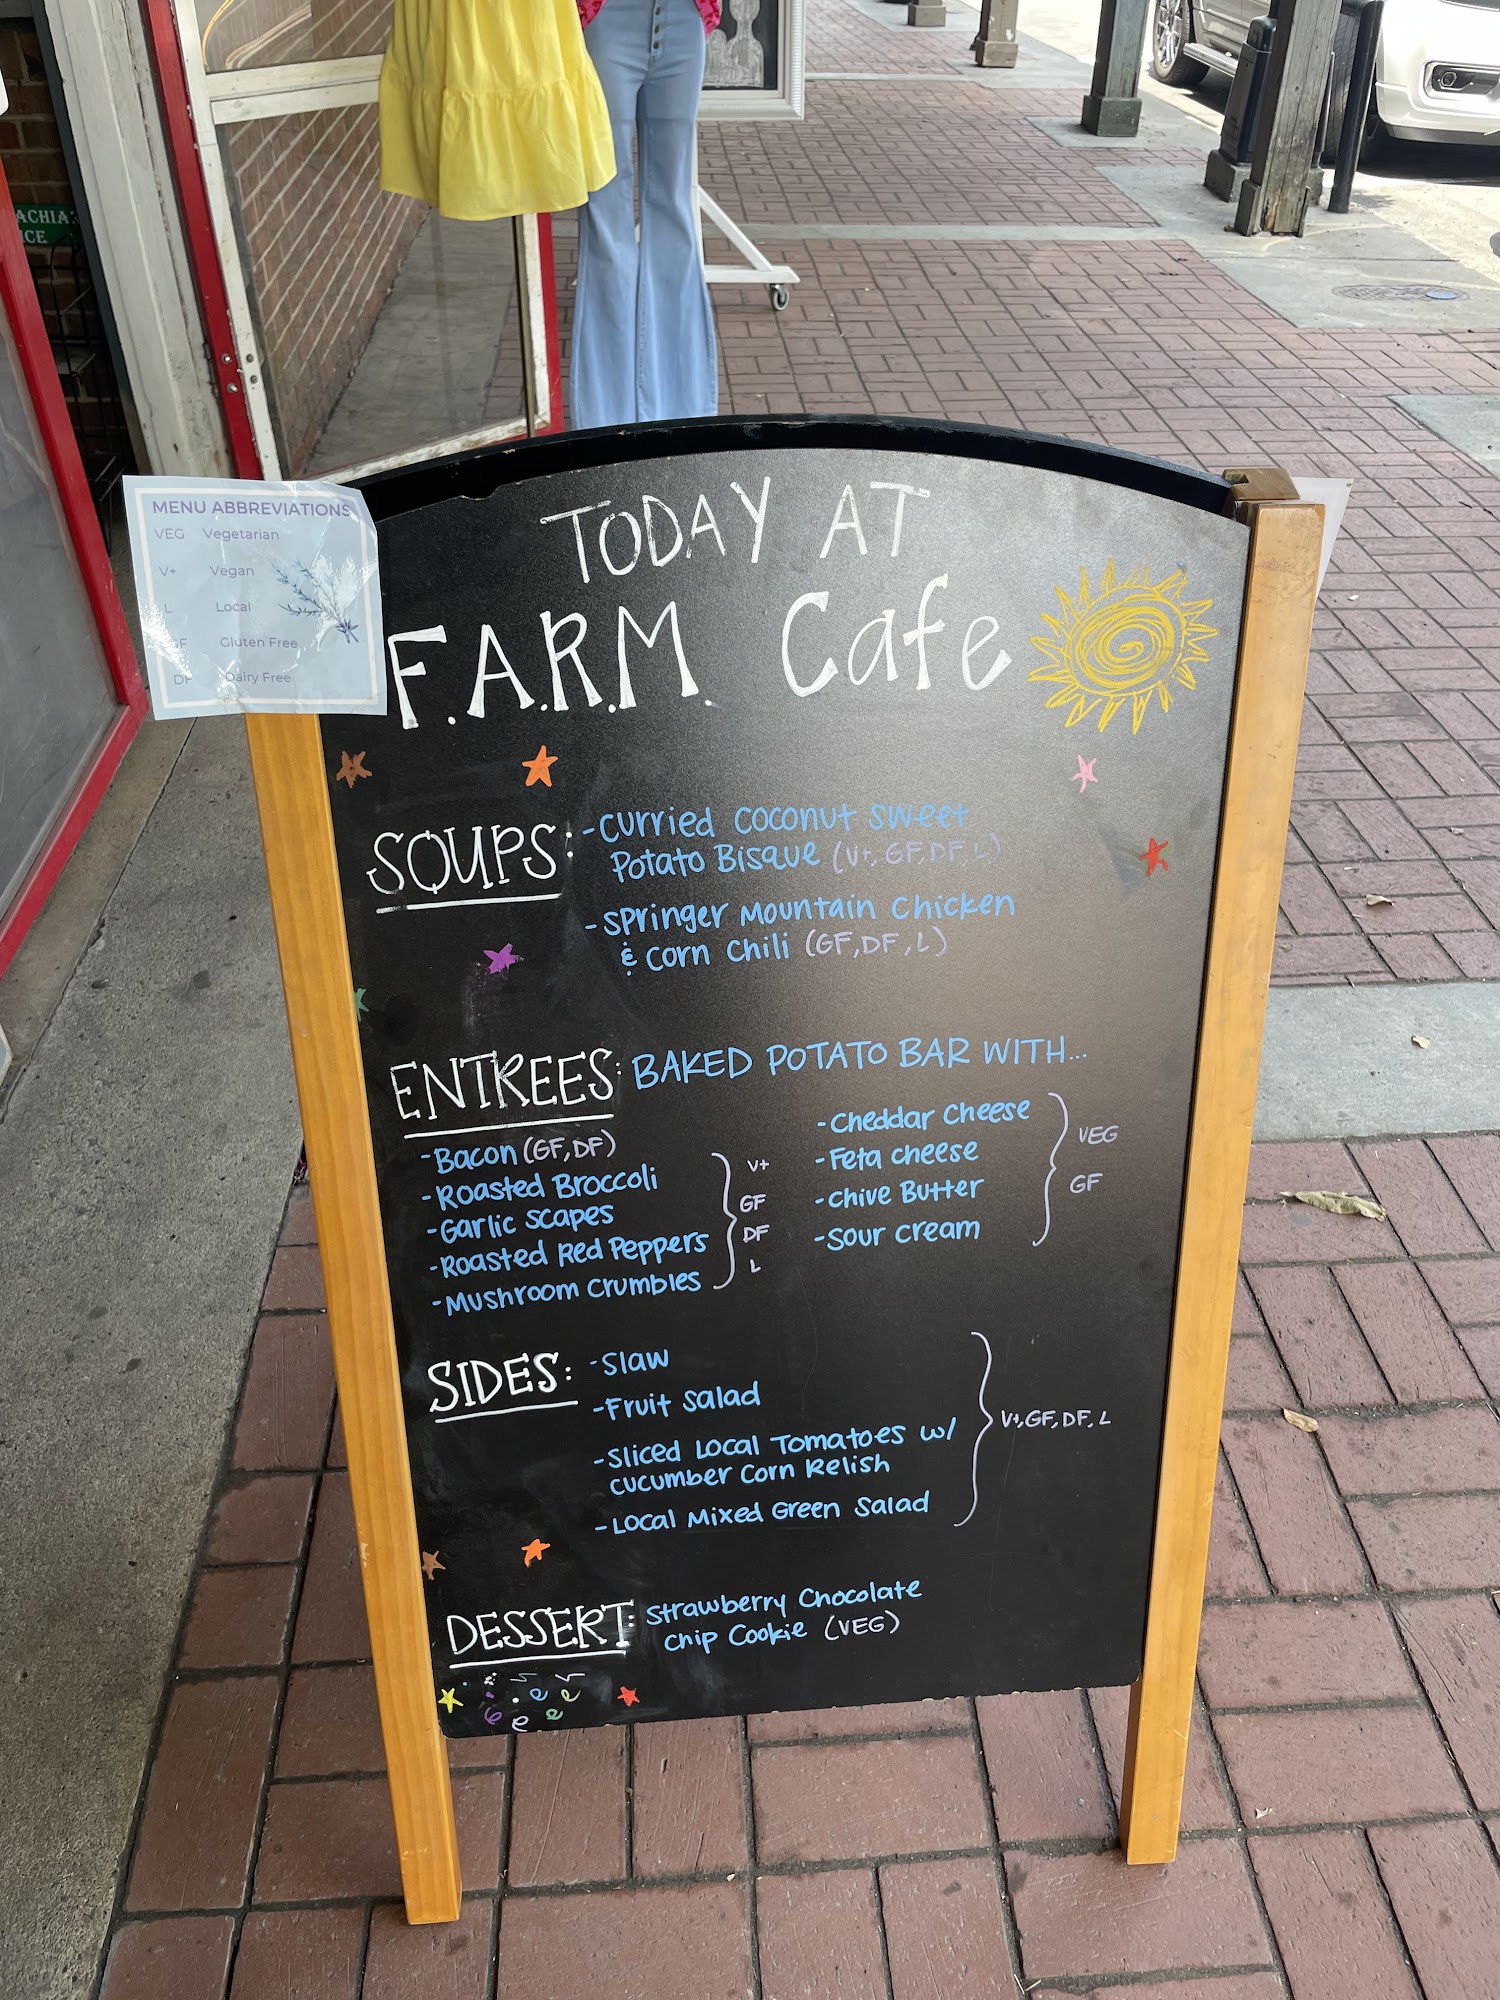 ACHIA
ICE
MENU ABBREVIATIONS
VEG Vegetarian
V+ Vegan
L Local
GF Gluten Free
DF Dairy Free
TODAY AT
F.A.R.M. Cafe
SOUPS: -Curried Coconut Sweet
Potato Bisque (V+, GF, DF, L)
-Springer Mountain Chicken
& Corn Chili (GF, DF, L)
ENTREES: BAKED POTATO BAR WITH...
-Bacon (GF, DF)
-Roasted Broccoli
-Garlic Scapes
-Roasted Red Peppers
-Mushroom Crumbles
V+
GF
DF
L
-Cheddar Cheese
-Feta Cheese
-Chive Butter
-Sour Cream
VEG
GF
SIDES: -Slaw
-Fruit Salad
-Sliced Local Tomatoes w/
Cucumber Corn Relish
-Local Mixed Green Salad
V+, GF, DF, L
DESSERT: Strawberry Chocolate
Chip Cookie (VEG)